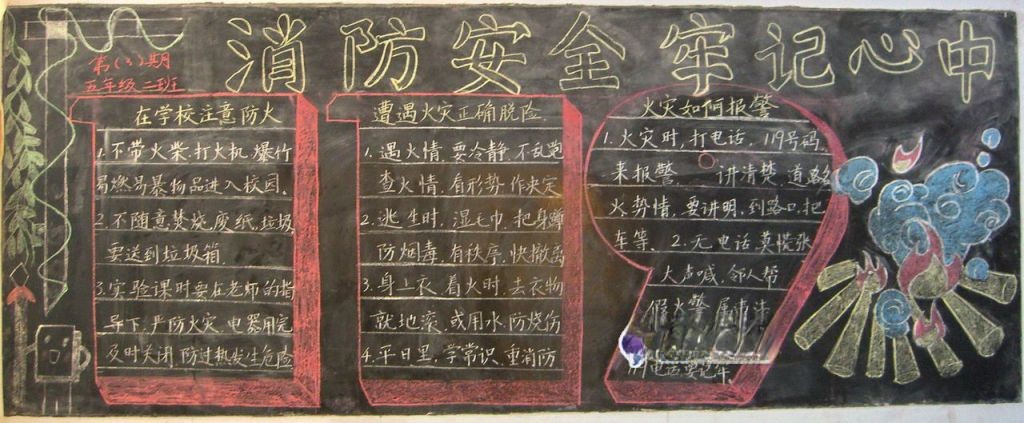 消防安全牢记心中
第(3)期
五年级二班
在学校注意防火
1.不带火柴.打火机.爆竹
易燃易暴物品进入校园.
2.不随意焚烧.废纸.垃圾
要送到垃圾箱.
3.实验课时要在老师的指
导下.严防火灾.电器用完
及时关闭.防过热发生危险
遭遇火灾正确脱险
1.遇火情.要冷静.不乱跑
查火情.看形势.作决定
2.逃生时.湿毛巾.把身蹲
防烟毒.有秩序.快撤离
3.身上衣.着火时.去衣物
就地滚.或用水.防烧伤
4.平日里.学常识.重消防
火灾如何报警
1.火灾时,打电话,119号码.
来报警. 讲清楚,道路名
火势情,要讲明,到路口,把
车等. 2.无电话,莫慌张
大声喊,邻人帮
假火警
电话要记牢.